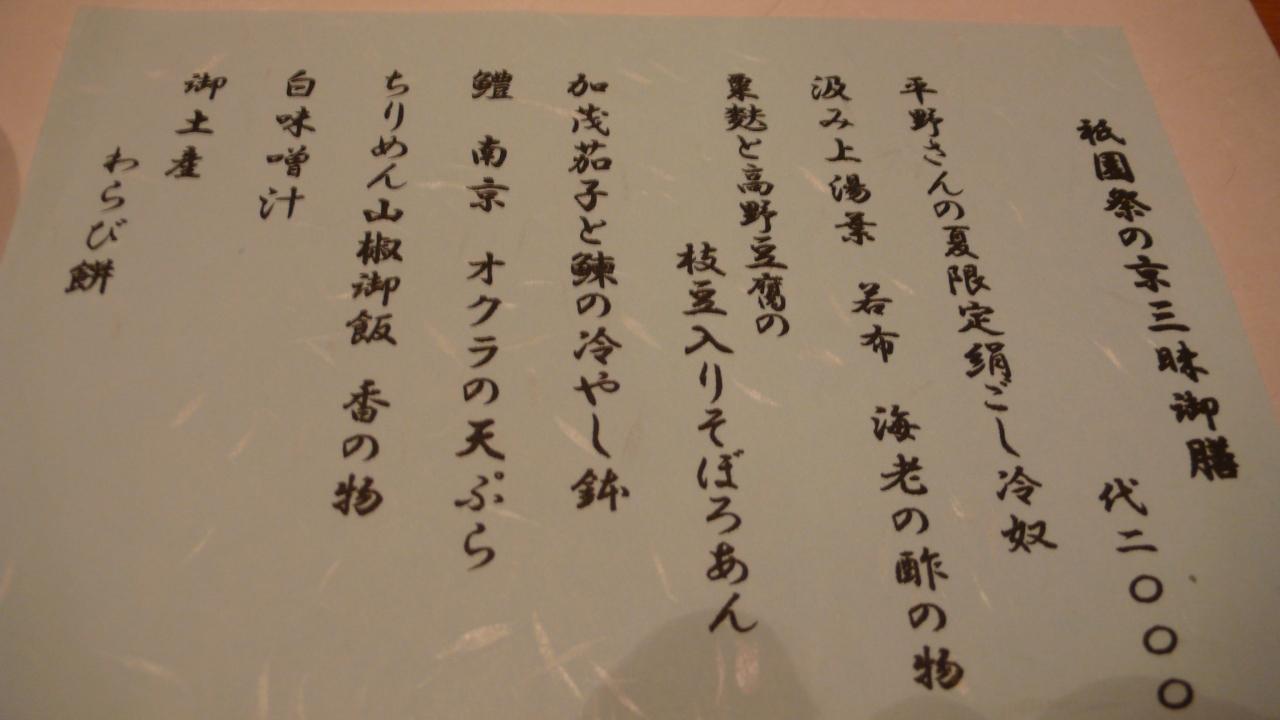 祇園祭の京三昧御膳
代二〇〇〇
平野さんの夏限定絹ごし冷奴
汲み上湯葉 若布 海老の酢の物
粟麩と高野豆腐の
枝豆入りそぼろあん
加茂茄子と鰊の冷やし鉢
鱧 南京 オクラの天ぷら
ちりめん山椒御飯 番の物
白味噌汁
御土産
わらび餅